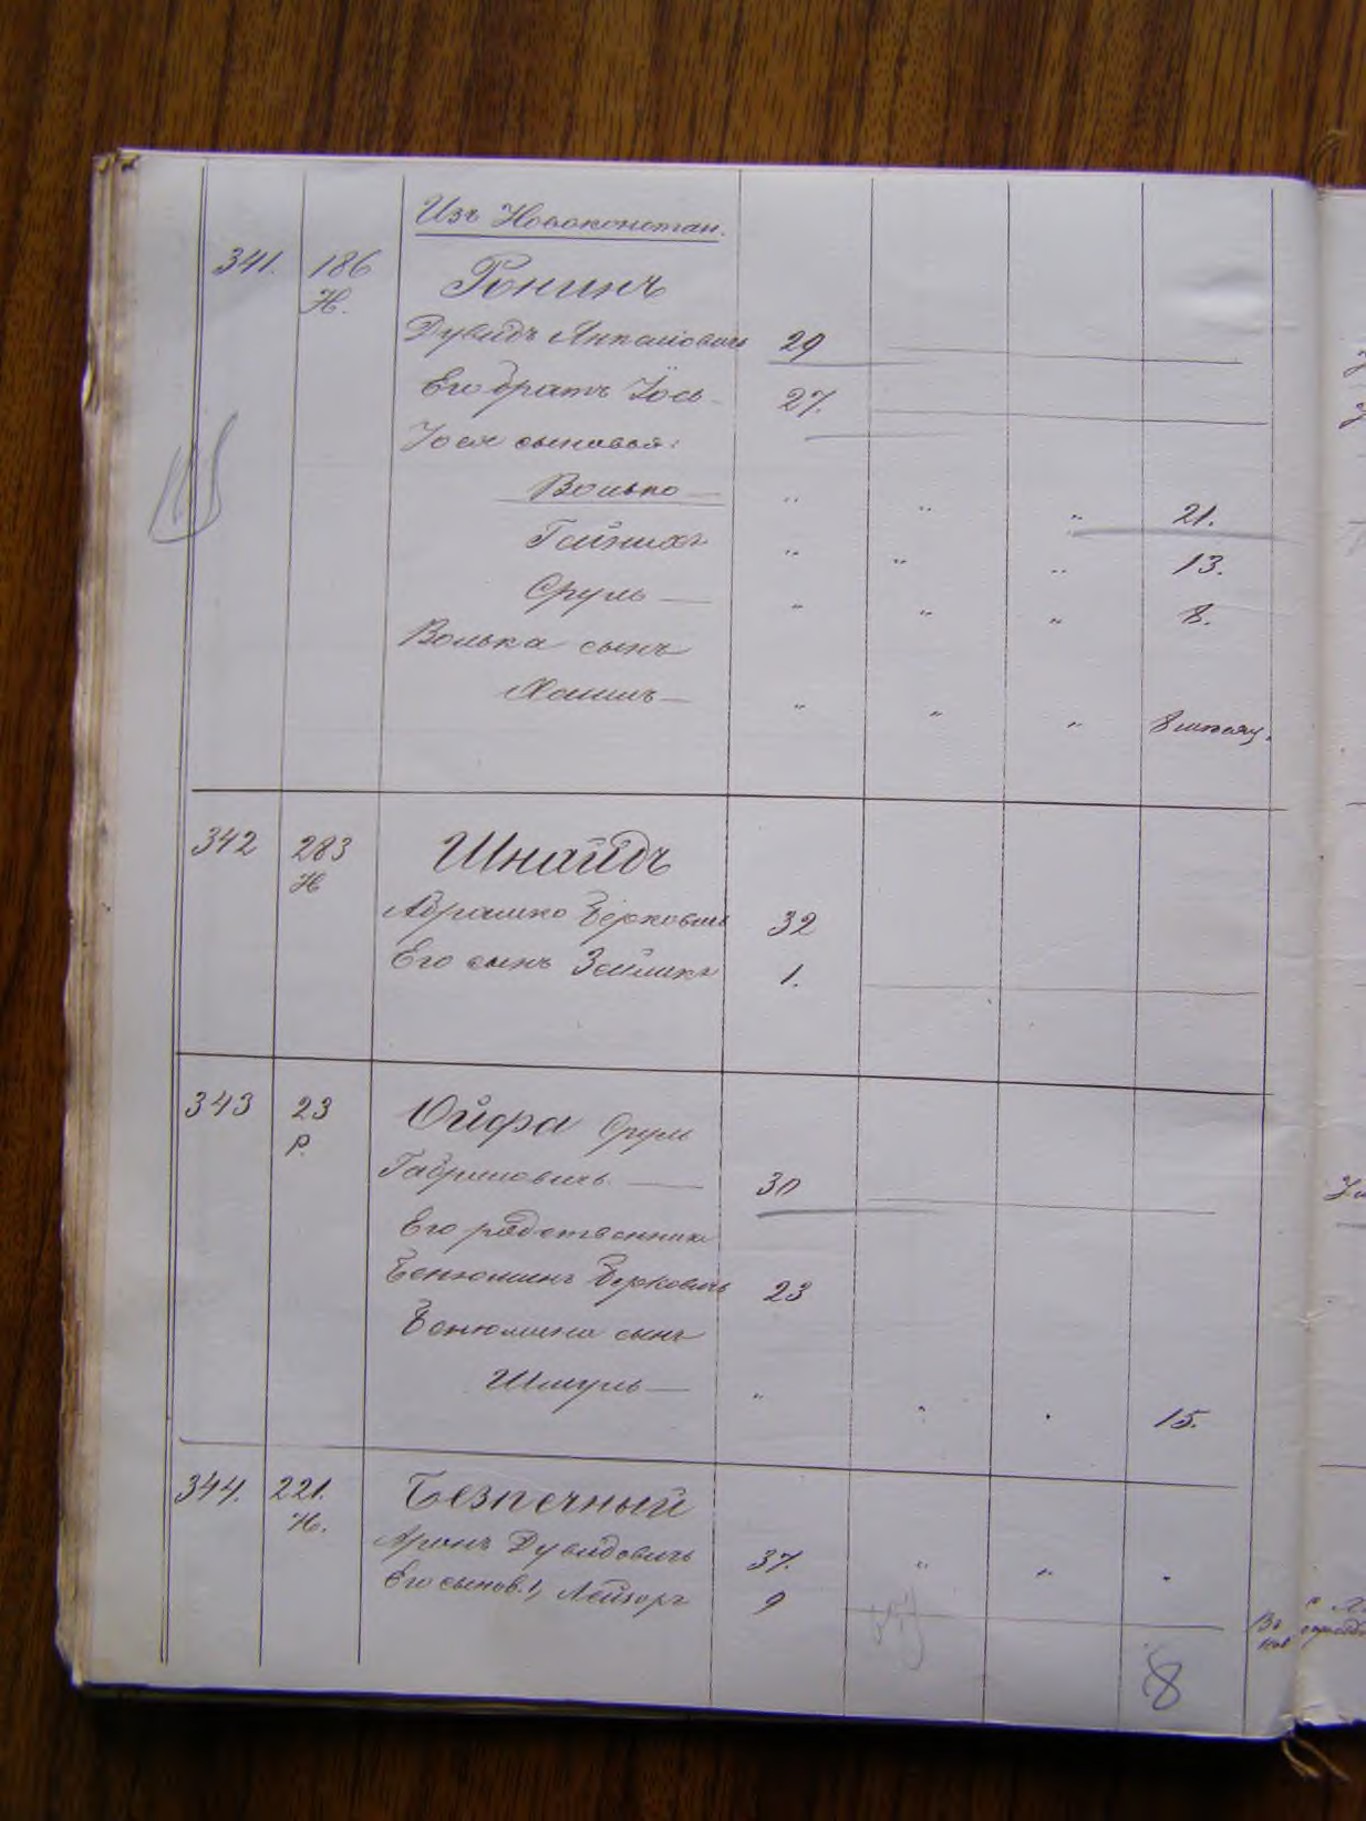 Изъ Новоконстан.
341. 186 Ронинъ
Н.
Дувидъ 29
Его братъ Іось 27.
Іося сыновья:
Волько „ „ „ 21.
Гейнихъ „ „ „ 13.
Сруль „ „ „ 8.
Волька сынъ
Хаимъ „ „ „ 8
342 283 Шнайдъ
Н
Абрамко Берковичъ 32
Его сынъ Зейликъ 1.
343 23 Ойфа Сруль
Р.
Габриловичъ 30
Его родственникъ
Бенюминъ Берковичъ 23
Бенюмина сынъ
Шмуль „ „ „ 15.
344. 221. Безпечный
Н.
Аронъ Дувидовичъ 37. „ „ „
Его сынов. 1, Лейзоръ 9
8